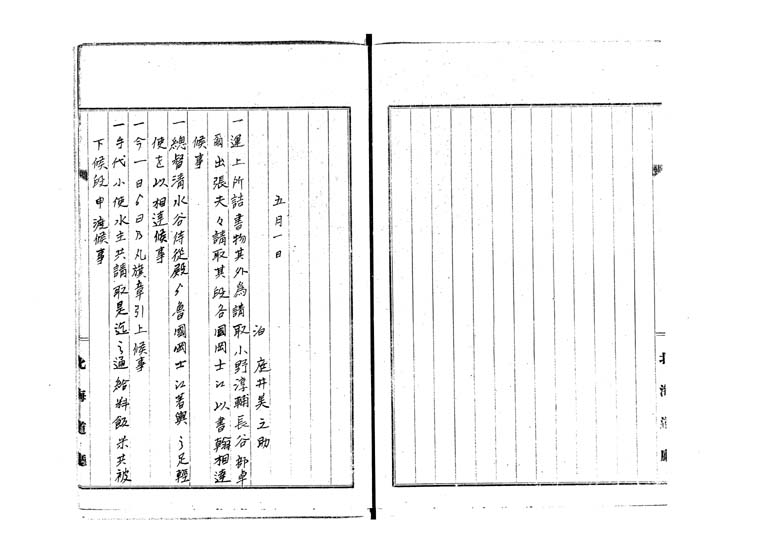 五月一日
泊 庭井美之助
一運上所詰書物其外為請取小野淳輔長谷部卓
爾出張夫々請取其段各國岡士江以書翰相達
候事
一總督清水谷侍從殿ゟ魯國岡士江着輿之足輕
使を以相達候事
一今一日ゟ日乃丸旗章引上候事
一手代小使水主共請取是迄之通給料飯米共被
下候段申渡候事
北海道廳
北海道廳